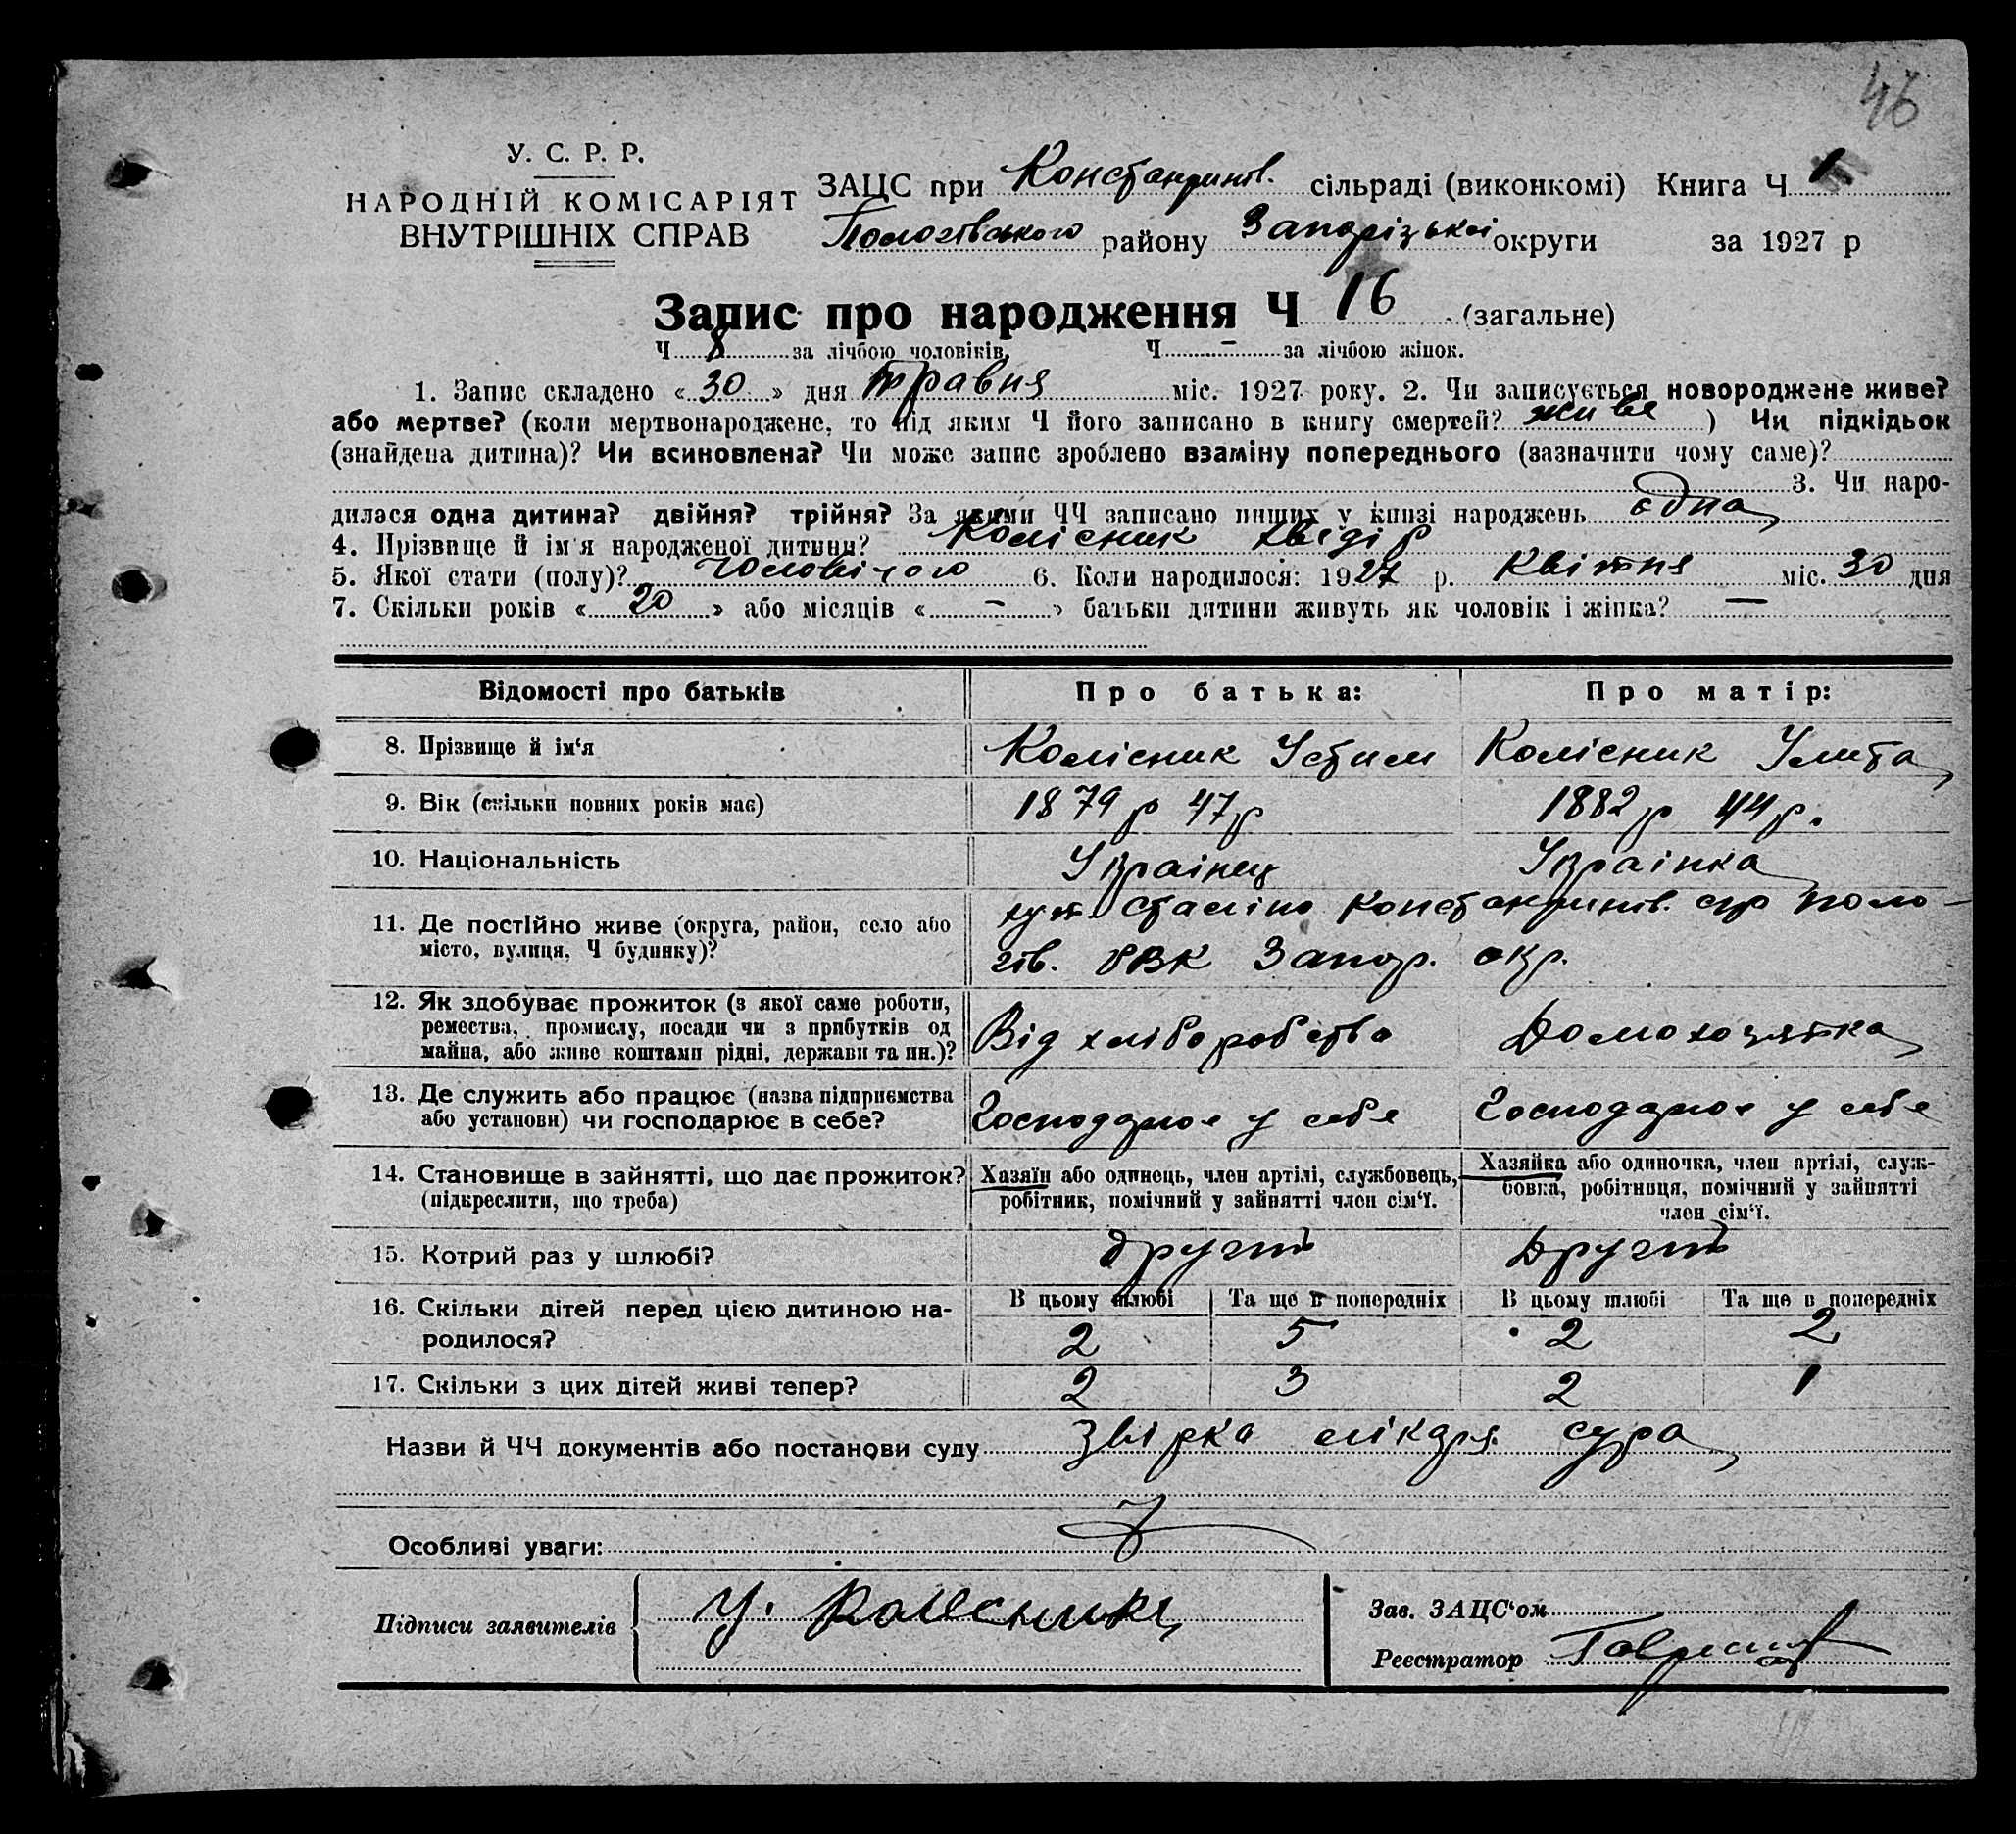 46
У. С. Р. Р.
НАРОДНІЙ КОМІСАРІЯТ
ВНУТРІШНІХ СПРАВ
ЗАЦС при Константинов. сільраді (виконкомі) Книга Ч 1
Пологівського району Запорізької округи за 1927 р
Запис про народження Ч 16 (загальне)
Ч 8 за лічбою чоловіків. Ч – за лічбою жінок.
1. Запис складено « 30 » дня травня міс. 1927 року. 2. Чи записується новороджене живе?
або мертве? (коли мертвонароджене, то під яким Ч його записано в книгу смертей? живе ) Чи підкідьок
(знайдена дитина)? Чи всиновлена? Чи може запис зроблено взаміну попереднього (зазначити чому саме)?
3. Чи наро-
дилася одна дитина? двійня? трійня? За якими ЧЧ записано инших у книзі народжень єдна
4. Прізвище й ім'я народженої дитини? Колісник Хведір
5. Якої стати (полу)? Чоловічого 6. Коли народилося: 1927 р. Квітня міс. 30 дня
7. Скільки років « 20 » або місяців « – » батьки дитини живуть як чоловік і жінка? —
Відомості про батьків Про батька: Про матір:
8. Прізвище й ім'я Колісник Устим Колісник Улита
9. Вік (скільки повних років має) 1879 р 47 р 1882 р 44 р.
10. Національність Українец Українка
11. Де постійно живе (округа, район, село або
місто, вулиця, Ч будинку)?
хут. Сталіно Константинов. с/р Поло-
гів. РВК Запор. окр.
12. Як здобуває прожиток (з якої саме роботи,
ремества, промислу, посади чи з прибутків од
майна, або живе коштами рідні, держави та ин.)?
Від хліборобства Домохозяйка
13. Де служить або працює (назва підприємства
або установи) чи господарює в себе?
Господарює у себе Господарює у себе
14. Становище в зайнятті, що дає прожиток?
(підкреслити, що треба)
Хазяїн або одинець, член артілі, службовець,
робітник, помічний у зайнятті член сім'ї.
Хазяйка або одиночка, член артілі, служ-
бовка, робітниця, помічний у зайнятті
член сім'ї.
15. Котрий раз у шлюбі? другій Другій
16. Скільки дітей перед цією дитиною на-
родилося?
В цьому шлюбі Та ще в попередніх В цьому шлюбі Та ще в попередніх
2 5 2 2
17. Скільки з цих дітей живі тепер? 2 3 2 1
Назви й ЧЧ документів або постанови суду Звірка лікаря
Особливі уваги:
Підписи заявителів У. Колісник
Зав. ЗАЦС'ом
Реєстратор